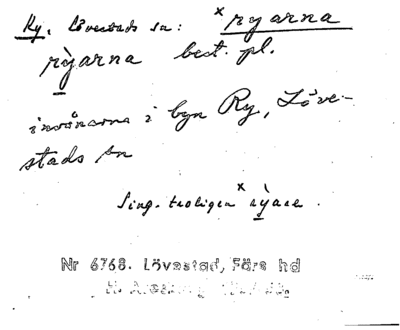 Ry, Lövestads sn: × ryarna
rỳarna best. pl.
invånarna i byn Ry, Löve-
stads sn
Sing. troligen × rỳare.
Nr 6768. Lövestad, Färs hd